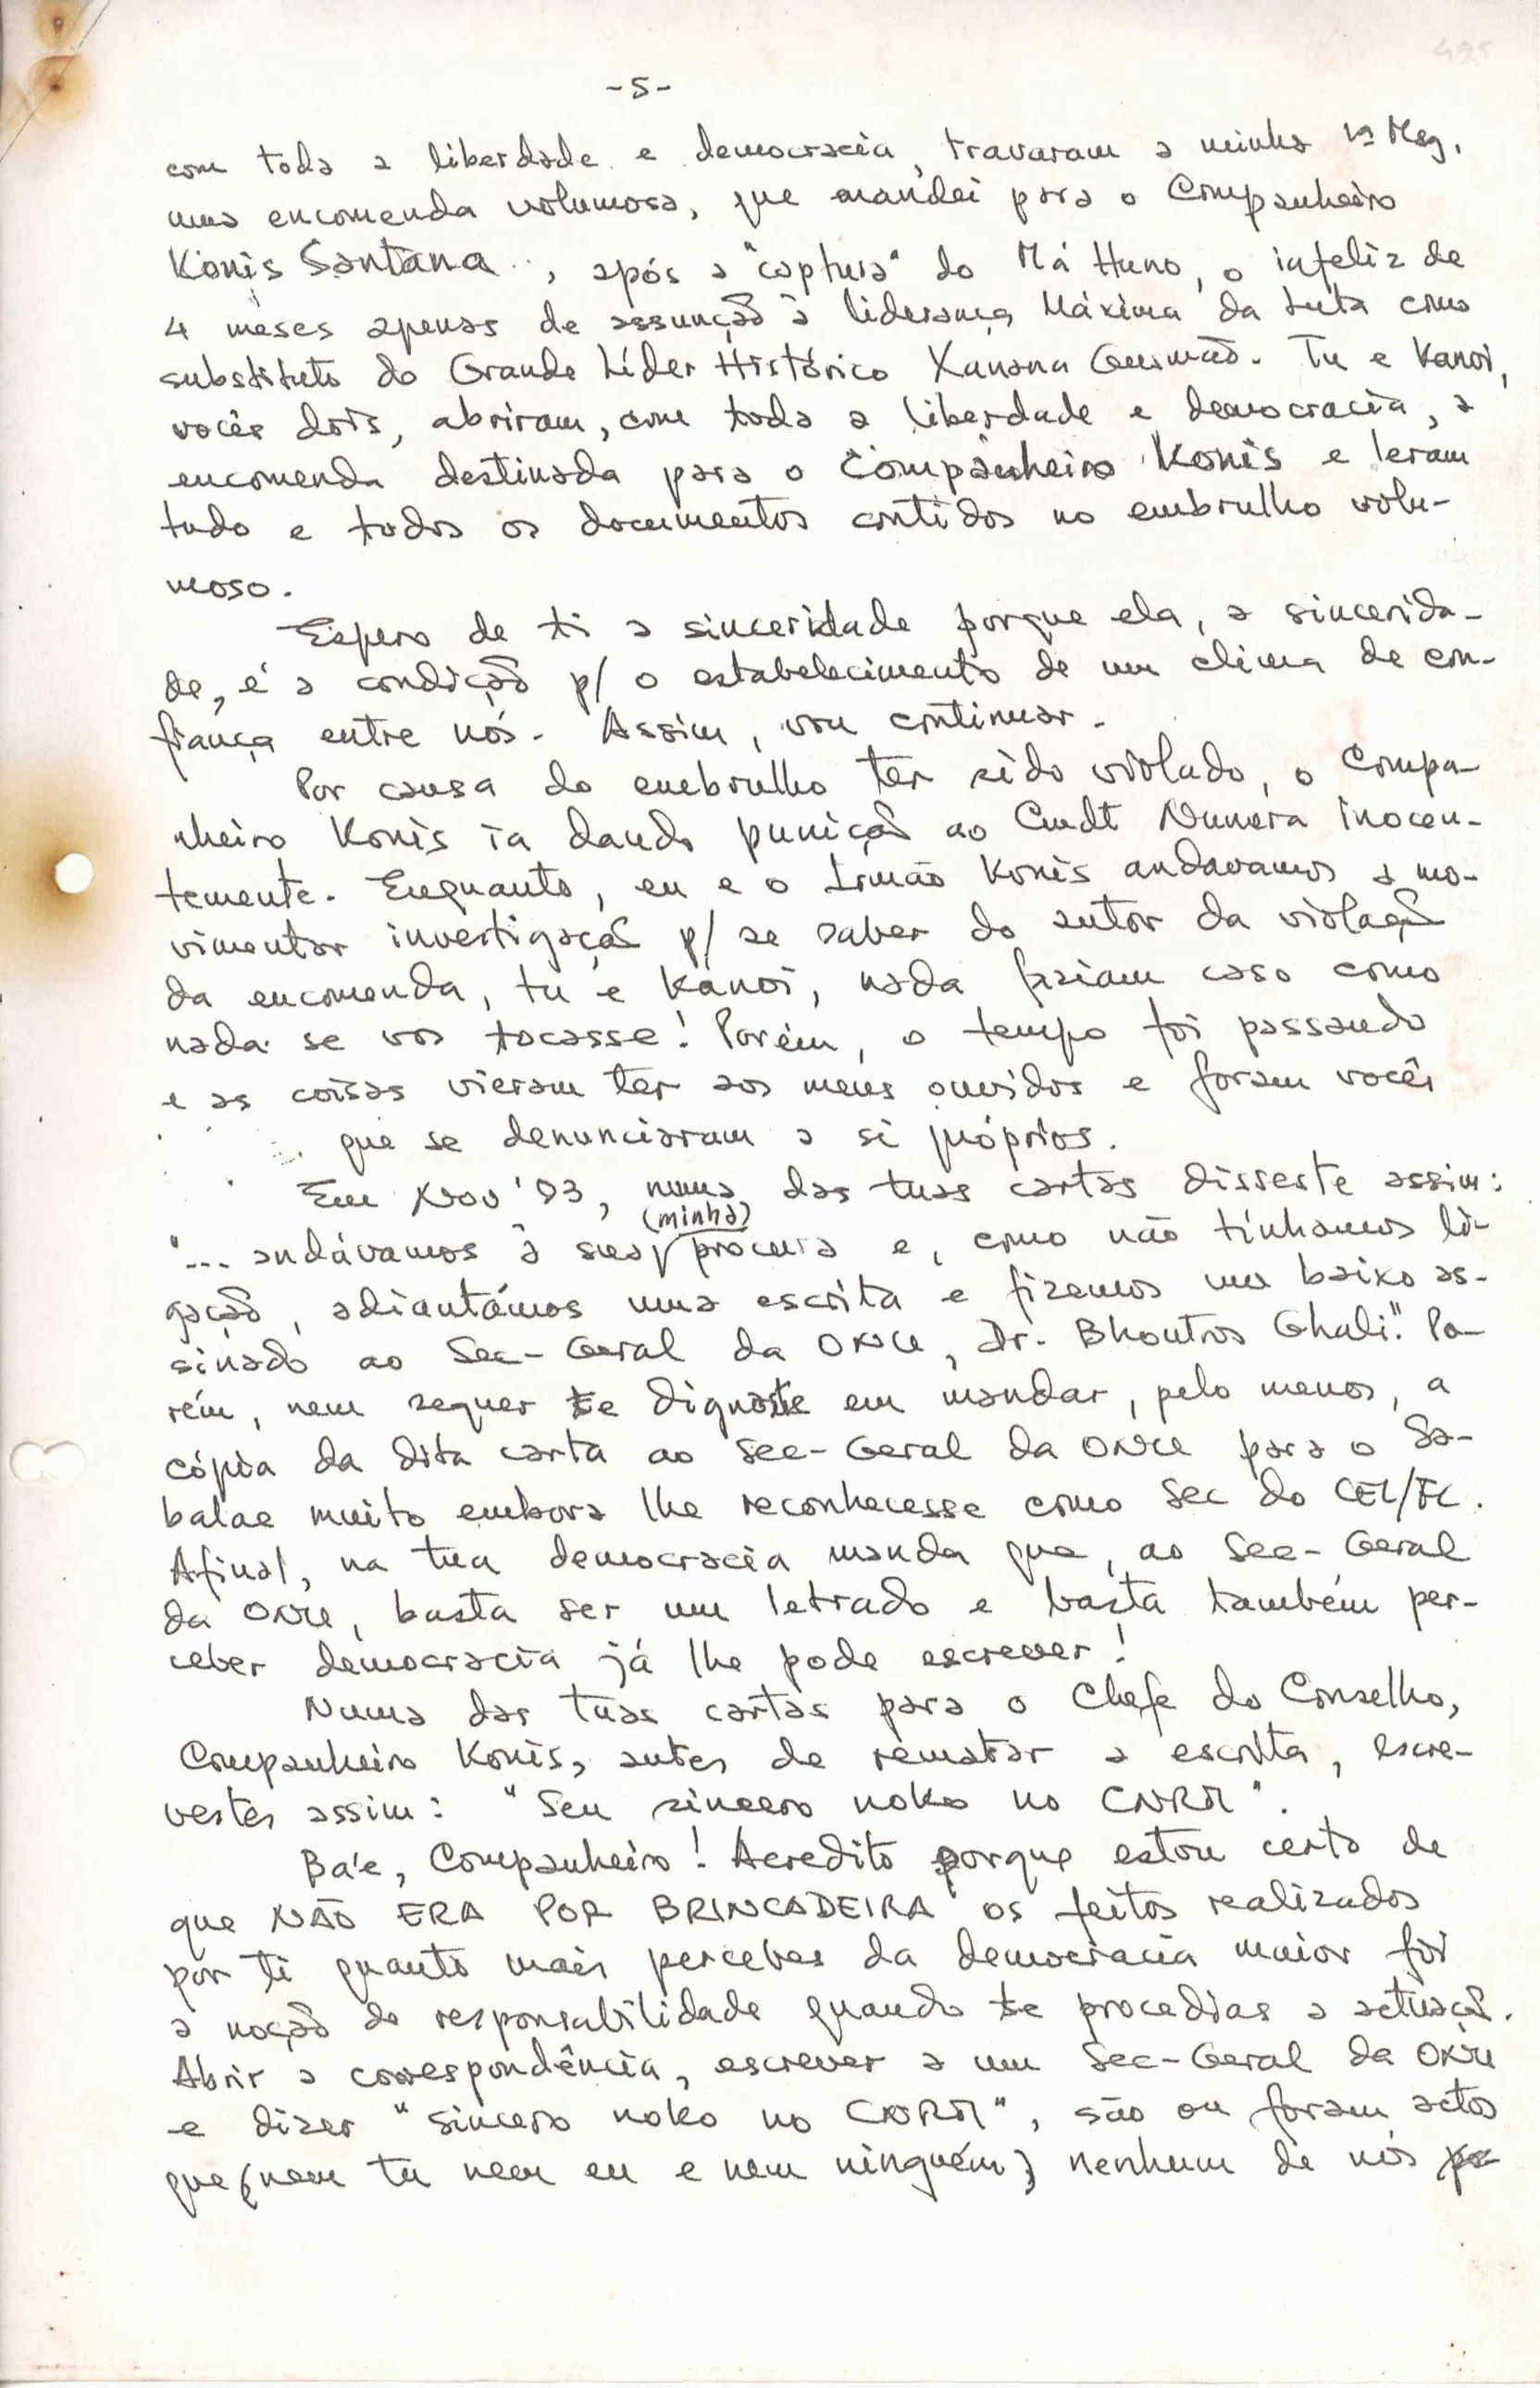 495
-5-
com toda a liberdade e democracia, travaram a minha 1ª Msg,
uma encomenda volumosa, que mandei para o Companheiro
Konis Santana, após a "captura" do Má Huno, o infeliz de
4 meses apenas de assunção à liderança Máxima da Luta como
substituto do Grande Líder Histórico Xanana Gusmão. Tu e Kanoi,
vocês dois, abriram, com toda a liberdade e democracia, a
encomenda destinada para o Companheiro Konis e leram
tudo e todos os documentos contidos no embrulho volu-
moso.
Espero de ti a sinceridade porque ela, a sincerida-
de, é a condição p/ o estabelecimento de um clima de con-
fiança entre nós. Assim, vou continuar.
Por causa do embrulho ter sido violado, o Compa-
nheiro Konis ia dando punição ao Cmdt Nunera inocen-
temente. Enquanto, eu e o Irmão Konis andavamos a mo-
vimentar investigação p/ se saber do autor da violação
da encomenda, tu e Kanoi, nada faziam caso como
nada se vos tocasse! Porém, o tempo foi passando
e as coisas vieram ter aos meus ouvidos e foram vocês
que se denunciaram a si próprios.
Em Nov '93, numa das tuas cartas disseste assim:
(minha)
"... andávamos à sua procura e, como não tínhamos li-
gação, adiantámos uma escrita e fizemos um baixo as-
sinado ao Sec-Geral da ONU, Dr. Bhoutros Ghali." Po-
rém, nem sequer te dignaste em mandar, pelo menos, a
cópia da dita carta ao Sec-Geral da ONU para o Sa-
balae muito embora lhe reconhecesse como Sec do CEL/FL.
Afinal, na tua democracia manda que, ao Sec-Geral
da ONU, basta ser um letrado e basta também per-
ceber democracia já lhe pode escrever!
Numa das tuas cartas para o Chefe do Conselho,
Companheiro Konis, antes de rematar a escrita, escre-
vestes assim: "Seu sincero noko no CNRM".
Ba'e, Companheiro! Acredito porque estou certo de
que NÃO ERA POR BRINCADEIRA os feitos realizados
por ti quanto mais percebes da democracia maior foi
a noção de responsabilidade quando te procedias a actuação.
Abrir a correspondência, escrever a um Sec-Geral da ONU
e dizer "sincero noko no CNRM", são ou foram actos
que (nem tu nem eu e nem ninguém) nenhum de nós